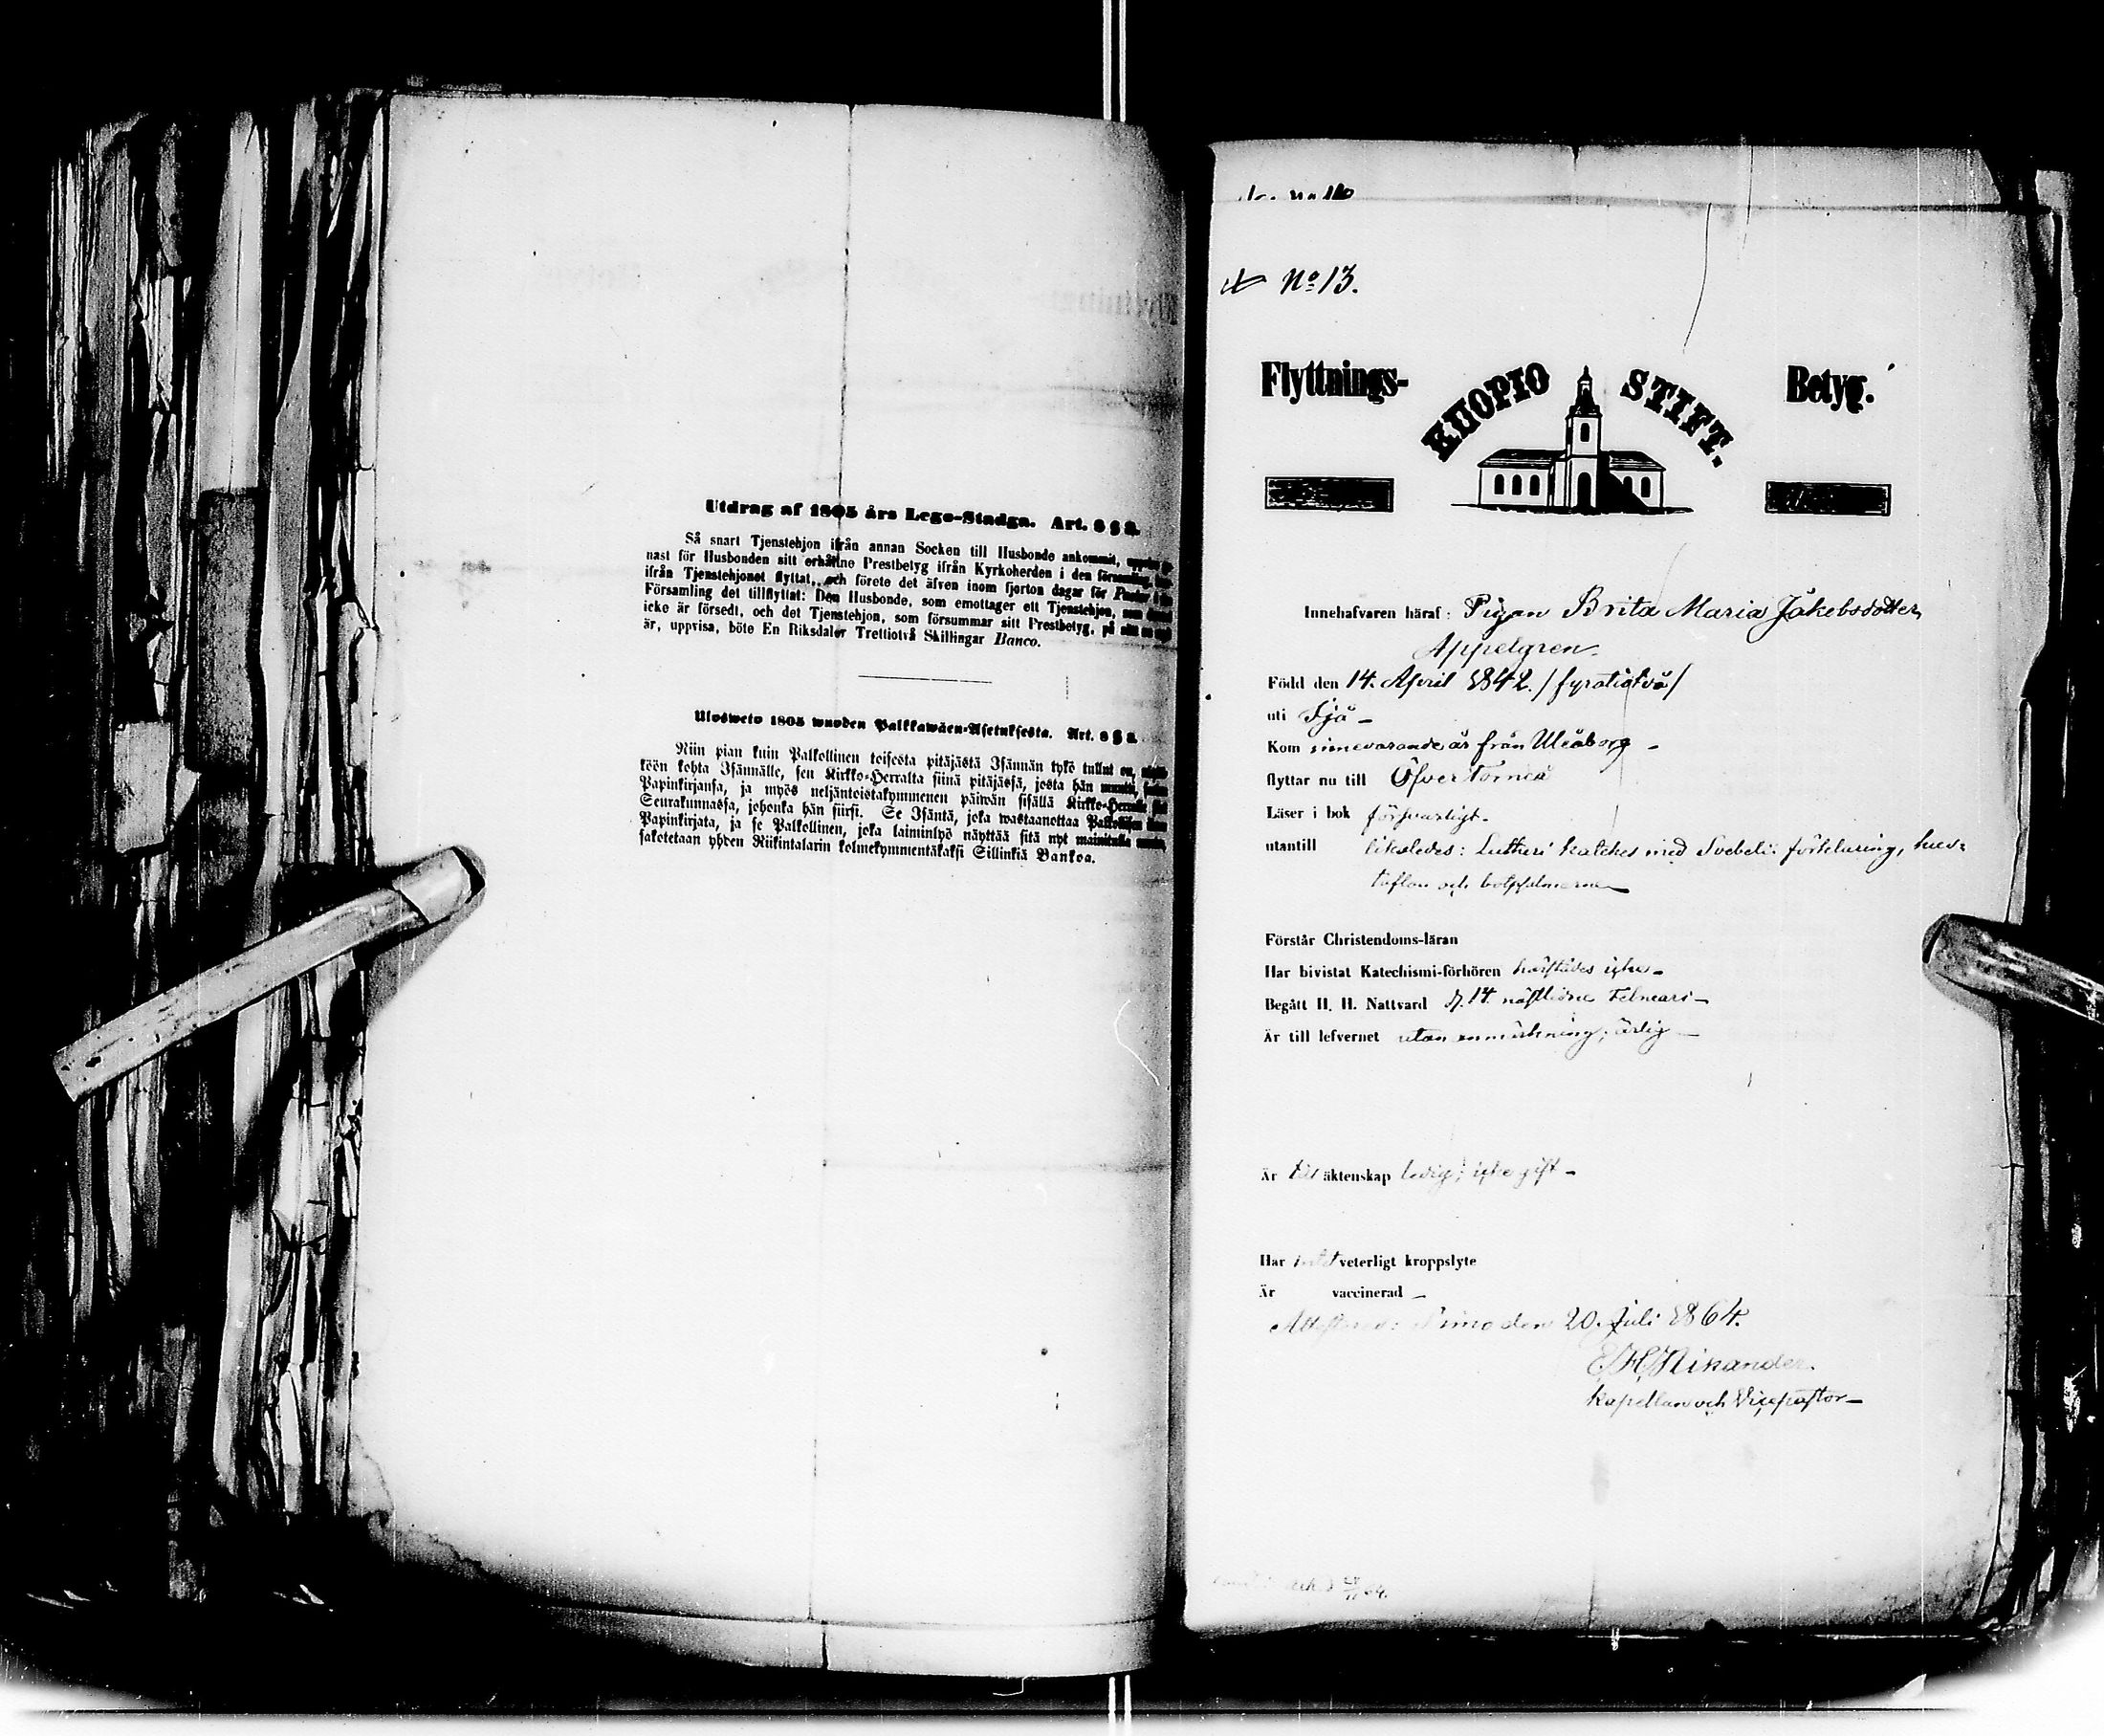 Utdrag af 1805 års Lego-Stadga. Art. 8 § 2.
Så snart Tjenstehjon ifrån annan Socken till Husbonde ankommit,
nast för Husbonden sitt erhållne Prestbetyg ifrån Kyrkoherden i den
ifrån Tjenstehjonet flyttat, och förete det äfven inom fjorton dagar för
Församling det tillflyttat: Den Husbonde, som emottager ett Tjenstehjon, som
icke är försedt, och det Tjenstehjon, som försummar sitt Prestbetyg, på
är, uppvisa, böte En Riksdaler Trettiotvå Skillingar Banco.
Ulosweto 1805 wuoden Palkkawäen-Asetuksesta. Art. 8 § 2.
Niin pian kuin Palkollinen toisesta pitäjästä Isännän tykö tullut on,
köön kohta Isännälle, sen Kirkko-Herralta siinä pitäjässä, josta hän
Papinkirjansa, ja myös neljäntoistakymmenen päiwän sisällä
Seurakunnassa, johonka hän siirsi. Se Isäntä, joka wastaanottaa
Papinkirjata, ja se Palkollinen, joka laiminlyö näyttää sitä nyt
sakotetaan yhden Riikintalarin kolmekymmentäkaksi Sillinkiä Bankoa.
No 13.
Flyttnings- KUOPIO STIFT. Betyg.
Innehafvaren häraf: Pigan Brita Maria Jakobsdotter
Appelgren.
Född den 14. April 1842. /fyratiotvå/
uti Ijo –
Kom innevarande år från Uleåborg –
flyttar nu till Öfver Torneå
Läser i bok försvarligt.
utantill likaledes: Lutheri Kateches med Svebelii förklaring, hus-
taflan och botpsalmerne
Förstår Christendoms-läran
Har bivistat Katechismi-förhören härstädes icke –
Begått H. H. Nattvard d. 14. nästlidne Februari –
Är till lefvernet utan anmärkning; ärlig –
Är till äktenskap ledig; icke gift –
Har intet veterligt kroppslyte
Är vaccinerad –
Attesterar: Simo den 20. Juli 1864.
E. H. Nikander
Kapellan och Vicepastor –